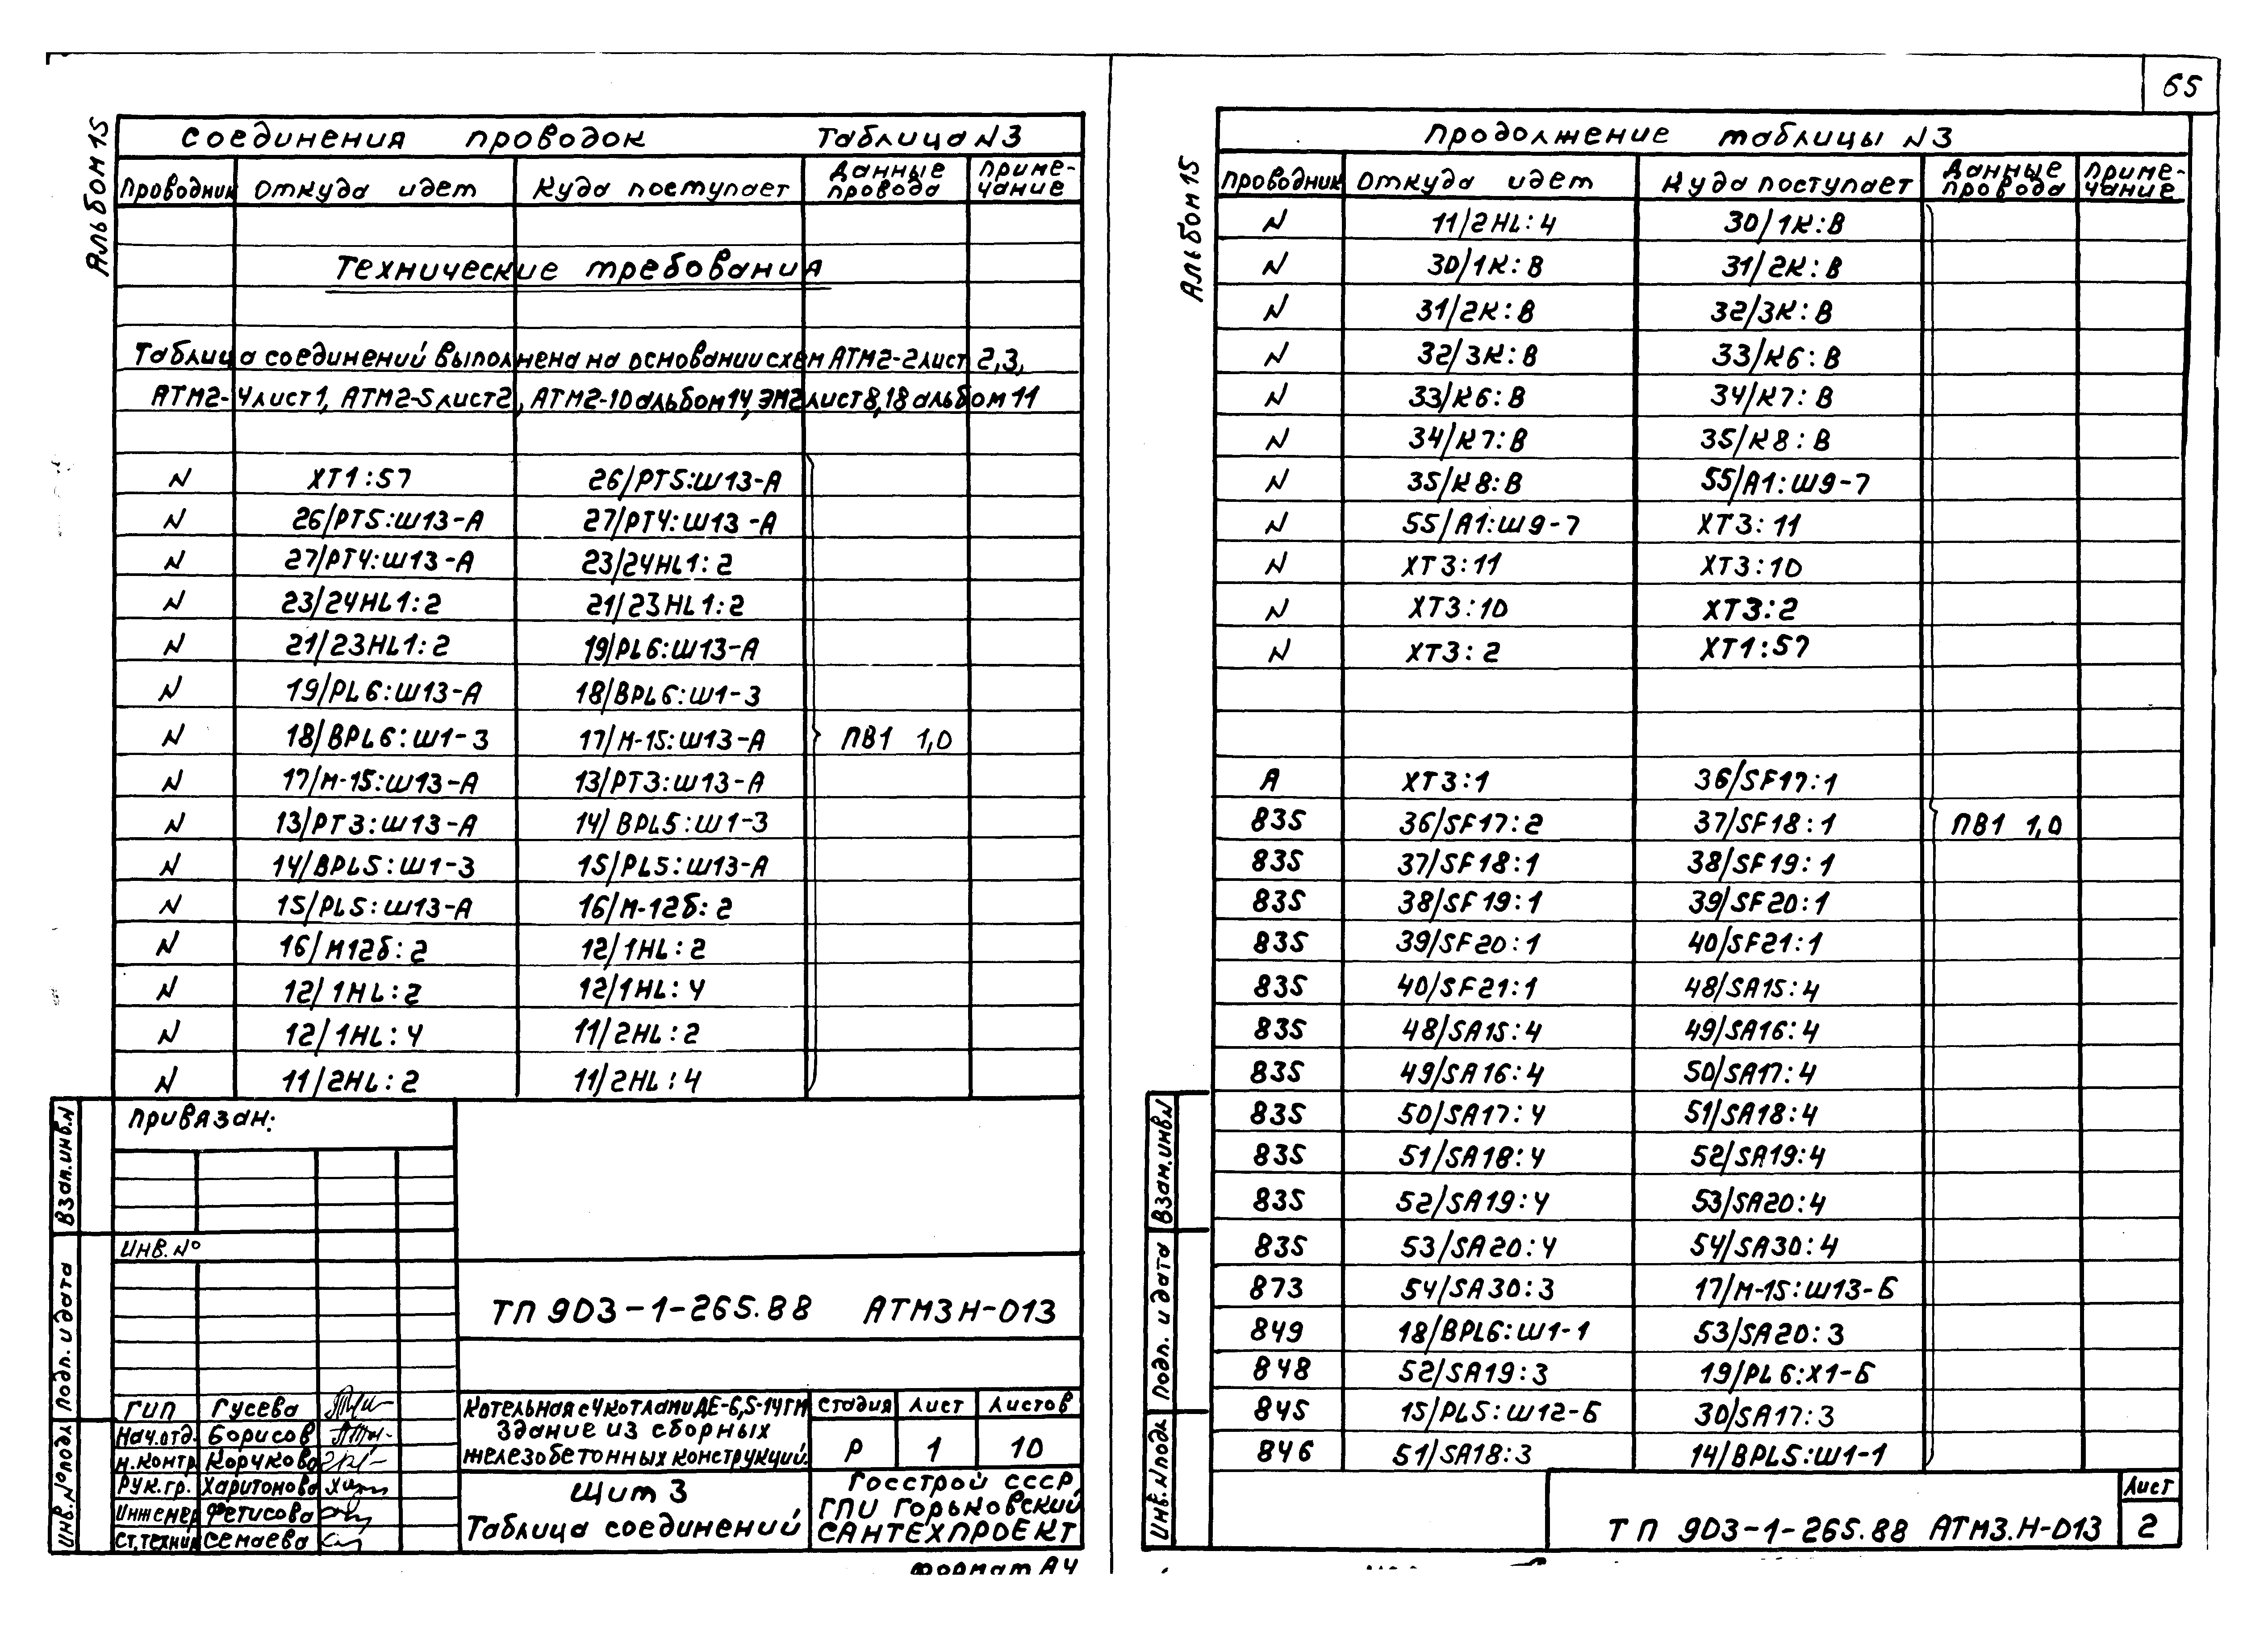 65
Альбом 15
Соединения проводок Таблица N3
Проводник Откуда идет Куда поступает Данные провода Примечание
Технические требования
Таблица соединений выполнена на основании схем АТМ2-2 лист 2,3,
АТМ2-4 лист 1, АТМ2-5 лист 2, АТМ2-10 альбом 14, ЭМ2 лист 8,18 альбом 11
N XT1:57 26/РТ5:Ш13-А
N 26/РТ5:Ш13-А 27/РТ4:Ш13-А
N 27/РТ4:Ш13-А 23/24HL1:2
N 23/24HL1:2 21/23HL1:2
N 21/23HL1:2 19/PL6:Ш13-А
N 19/PL6:Ш13-А 18/BPL6:Ш1-3
N 18/BPL6:Ш1-3 17/М-15:Ш13-А ПВ1 1,0
N 17/М-15:Ш13-А 13/РТ3:Ш13-А
N 13/РТ3:Ш13-А 14/BPL5:Ш1-3
N 14/BPL5:Ш1-3 15/PL5:Ш13-А
N 15/PL5:Ш13-А 16/М-12б:2
N 16/М12б:2 12/1HL:2
N 12/1HL:2 12/1HL:4
N 12/1HL:4 11/2HL:2
N 11/2HL:2 11/2HL:4
Привязан:
Инв. №
ТП 903-1-265.88 АТМ3Н-013
ГИП Гусева
Нач.отд. Борисов
Н.контр Корчково
Рук.гр. Харитонова
Инженер Фетисова
Ст.техник Семаева
Котельная с 4 котлами ДЕ-6,5-14ГМ
Здание из сборных
железобетонных конструкций.
Стадия Лист Листов
Р 1 10
Щит 3
Таблица соединений
Госстрой СССР
ГПИ Горьковский
САНТЕХПРОЕКТ
Формат А4
Взам.инв.N
Подп. и дата
Инв.№подл
Альбом 15
Продолжение таблицы N3
Проводник Откуда идет Куда поступает Данные провода Примечание
N 11/2HL:4 30/1К:В
N 30/1К:В 31/2К:В
N 31/2К:В 32/3К:В
N 32/3К:В 33/К6:В
N 33/К6:В 34/К7:В
N 34/К7:В 35/К8:В
N 35/К8:В 55/А1:Ш9-7
N 55/А1:Ш9-7 ХТ3:11
N ХТ3:11 ХТ3:10
N ХТ3:10 ХТ3:2
N ХТ3:2 ХТ1:57
А ХТ3:1 36/SF17:1
835 36/SF17:2 37/SF18:1 ПВ1 1,0
835 37/SF18:1 38/SF19:1
835 38/SF19:1 39/SF20:1
835 39/SF20:1 40/SF21:1
835 40/SF21:1 48/SA15:4
835 48/SA15:4 49/SA16:4
835 49/SA16:4 50/SA17:4
835 50/SA17:4 51/SA18:4
835 51/SA18:4 52/SA19:4
835 52/SA19:4 53/SA20:4
835 53/SA20:4 54/SA30:4
873 54/SA30:3 17/М-15:Ш13-Б
849 18/BPL6:Ш1-1 53/SA20:3
848 52/SA19:3 19/PL6:Х1-Б
845 15/PL5:Ш12-Б 30/SA17:3
846 51/SA18:3 14/BPL5:Ш1-1
Взам.инв.N
Подп. и дата
Инв.Nподл
ТП 903-1-265.88 АТМ3.Н-013
Лист
2